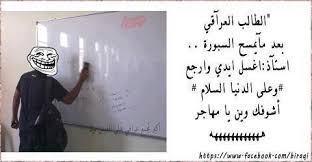 "الطالب العراقي
بعد مآيمسح السبورة ..
استآذ:اغسل ايدي وارجع
#وعلى الدنيا السلام #
أشوفك وين يا مهاجر
https://www-facebook-com/biraqi